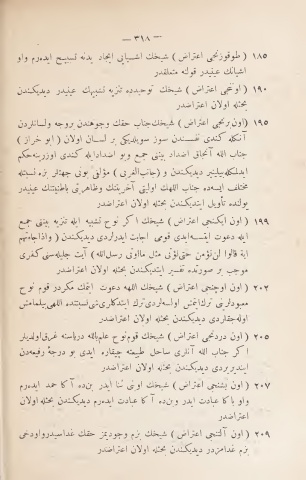 — ٣١٨ —
١٨٥ ( طوقوزنجی اعتراض ) شیخك اشیایی ایجاد ایدنه تسبیح ایدەرم واو
اشیانك عینیدر قولنه متعلقدر
١٩٠ ( اونجی اعتراض ) شیخك توحیدده تنزیه تشبیهك عینیدر دیدیکندن
بحثله اولان اعتراضدر
١٩٥ ( اون برنجی اعتراض ) شیخك جناب حقك وجوهندن بروجه ولسانلردن
آنکله کندی نفسندن سوز سویلدیکی بر لسان اولان ( ابو خراز )
جناب الله آنجاق اضداد بیننی جمع واو اضداد ایله کندی اوزرینه حکم
ایدلمکله بیلینیر دیدیکدن و ( جانب الغربی ) مؤلفی نونی جهتلر بزه نسبتله
مختلف ایسەده جناب اللهك اولیتی آخریتك وظاهریتی باطنیتنك عینیدر
یولنده تأویل ایتدیکندن بحثله اولان اعتراضدر
١٩٩ ( اون ایکنجی اعتراض ) شیخك اکر نوح تشبیه ایله تنزیه بیننی جمع
ایله دعوت ایتسه ایدی قومی اجابت ایدرلردی دیدیکندن ( واذا جاءتهم
آیة قالوا لن نؤمن حتی نؤتی مثل ما اوتی رسل الله ) آیت جلیله سنی کفری
موجب بر صورتده تفسیر ایتدیکندن بحثله اولان اعتراضدر
٢٠٢ ( اون اوچنجی اعتراض ) شیخك اللهه دعوت ایتمك مکردر قوم نوح
معبودلرینی ترك ایتمش اولسه لردی ترك ایتدکلری شی نسبتنده اللهی بیلمامش
اوله جقلردی دیدیکندن بحثله اولان اعتراضدر
٢٠٥ ( اون دردنجی اعتراض ) شیخك قوم نوح علم بالله دریاسنه غرق اولدیلر
اکر جناب الله آنلری ساحل طبیعته چیقاره ایدی بو درجهٔ رفیعه دن
ایندیریردی دیدیکندن بحثله اولان اعتراضدر
٢٠٧ ( اون بشنجی اعتراض ) شیخك اونی ثنا ایدر بن ده آکا حمد ایدەرم
واو باکا عبادت ایدر وبن ده آکا عبادت ایدەرم دیدیکندن بحثله اولان
اعتراضدر
٢٠٩ ( اون آلتنجی اعتراض ) شیخك بزم وجودیمز حقك غداسیدر واودخی
بزم غدامزدر دیدیکندن بحثله اولان اعتراضدر